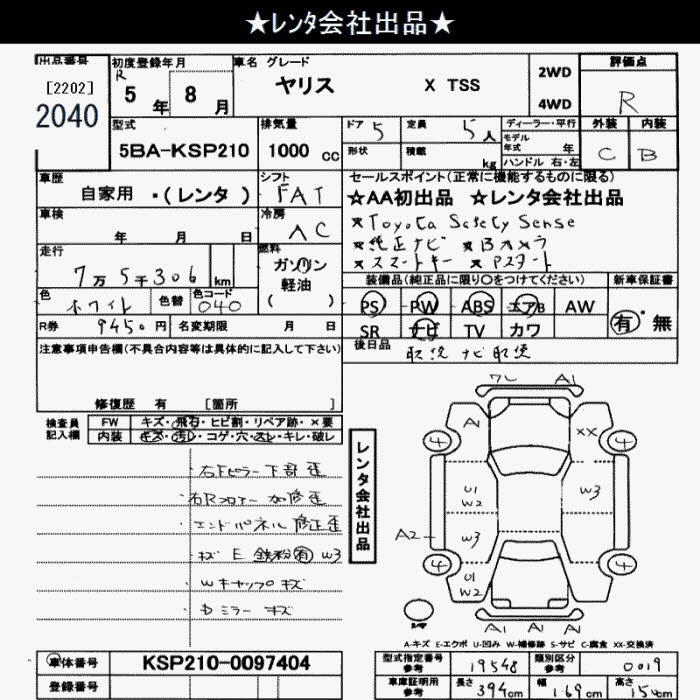 ★レンタ会社出品★
出品番号 初度登録年月 車名 グレード 評価点
[2202] R 5年 8月 ヤリス X TSS 2WD
2040 4WD R
型式 排気量 ドア 5 定員 5人 ディーラー・平行 外装 内装
5BA-KSP210 1000cc 形状 積載 kg モデル年式 年 C B
ハンドル 右・左
車歴 シフト セールスポイント(正常に機能するものに限る)
自家用 ・(レンタ ) FAT ☆AA初出品 ☆レンタ会社出品
車検 冷房 ★Toyota Safety Sense
年 月 日 AC ★純正ナビ ★Bカメラ
走行 燃料 ★スマートキー ★Pスタート
7万5千306 km ガソリン 装備品(純正品に限り〇をつけてください) 新車保証書
軽油
( )
色 ホワイト 色替 色コード 040 PS PW ABS エアB AW 有・無
R券 9450円 名変期限 月 日 SR ナビ TV カワ
注意事項申告欄(不具合内容等は具体的に記入して下さい) 後日品 取説 ナビ取説
修復歴 有 [箇所 ]
ワレ A1
検査員 FW キズ・飛石・ヒビ割・リペア跡・×要
記入欄 内装 キズ・汚レ・コゲ・穴・スレ・キレ・破レ
A1 XX
4 4
右Fピラー下部歪
レンタ会社出品
右Rフロアー加修歪
U1 W2 W3
エンドパネル修正歪
A2 W3
キズ E 鉄粉有 W3
4 4
Wキャップキズ
U1 W2
Dミラーキズ
A1 A1 A1
A-キズ E-エクボ U-凹み W-補修跡 S-サビ C-腐食 XX-交換済
車体番号 KSP210-0097404 型式指定番号 参考 19548 類別区分 参考 0019
登録番号 車庫証明用 参考 長さ 394cm 幅 169cm 高さ 150cm